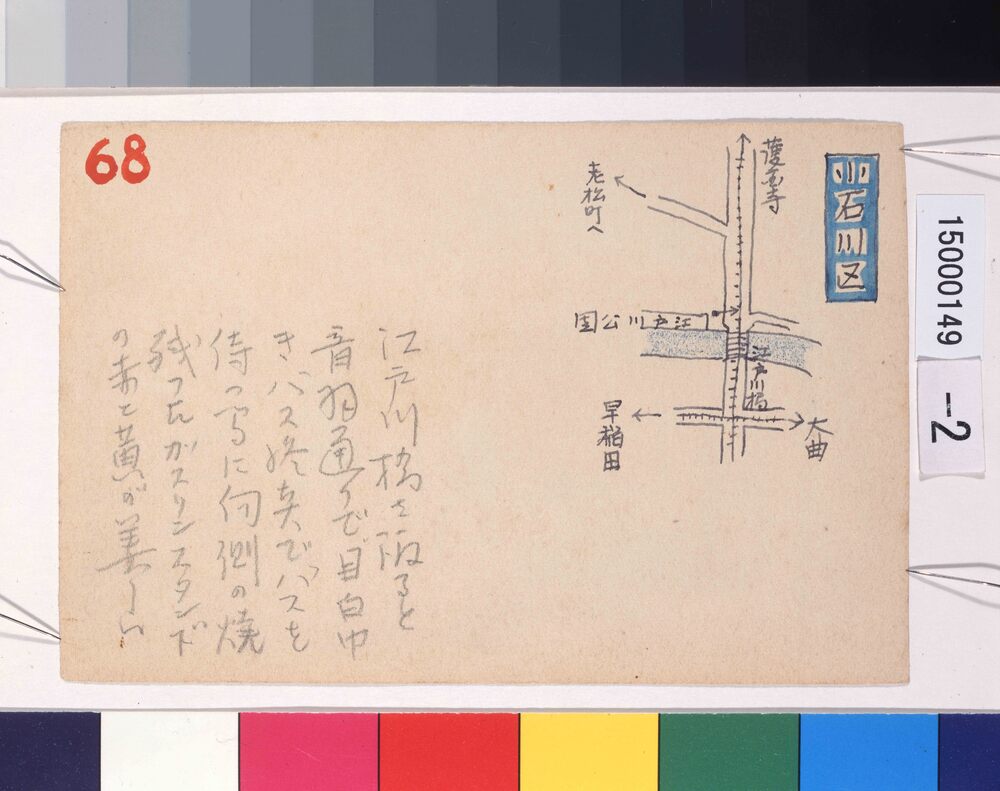 68
小石川区
護国寺
老松町へ
江戸川公園
江戸川橋
早稲田
大曲
江戸川橋を渡ると
音羽通りで目白中
きバス終点でバスを
待つ間に向側の焼
残つたガスリンスタンド
の赤と黄が美しい
15000149
--2